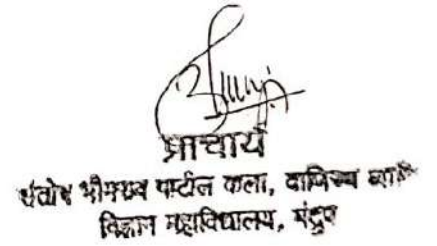 प्राचार्य
संतोष भीमराव पाटील कला, वाणिज्य आणि
विज्ञान महाविद्यालय, मंद्रुप